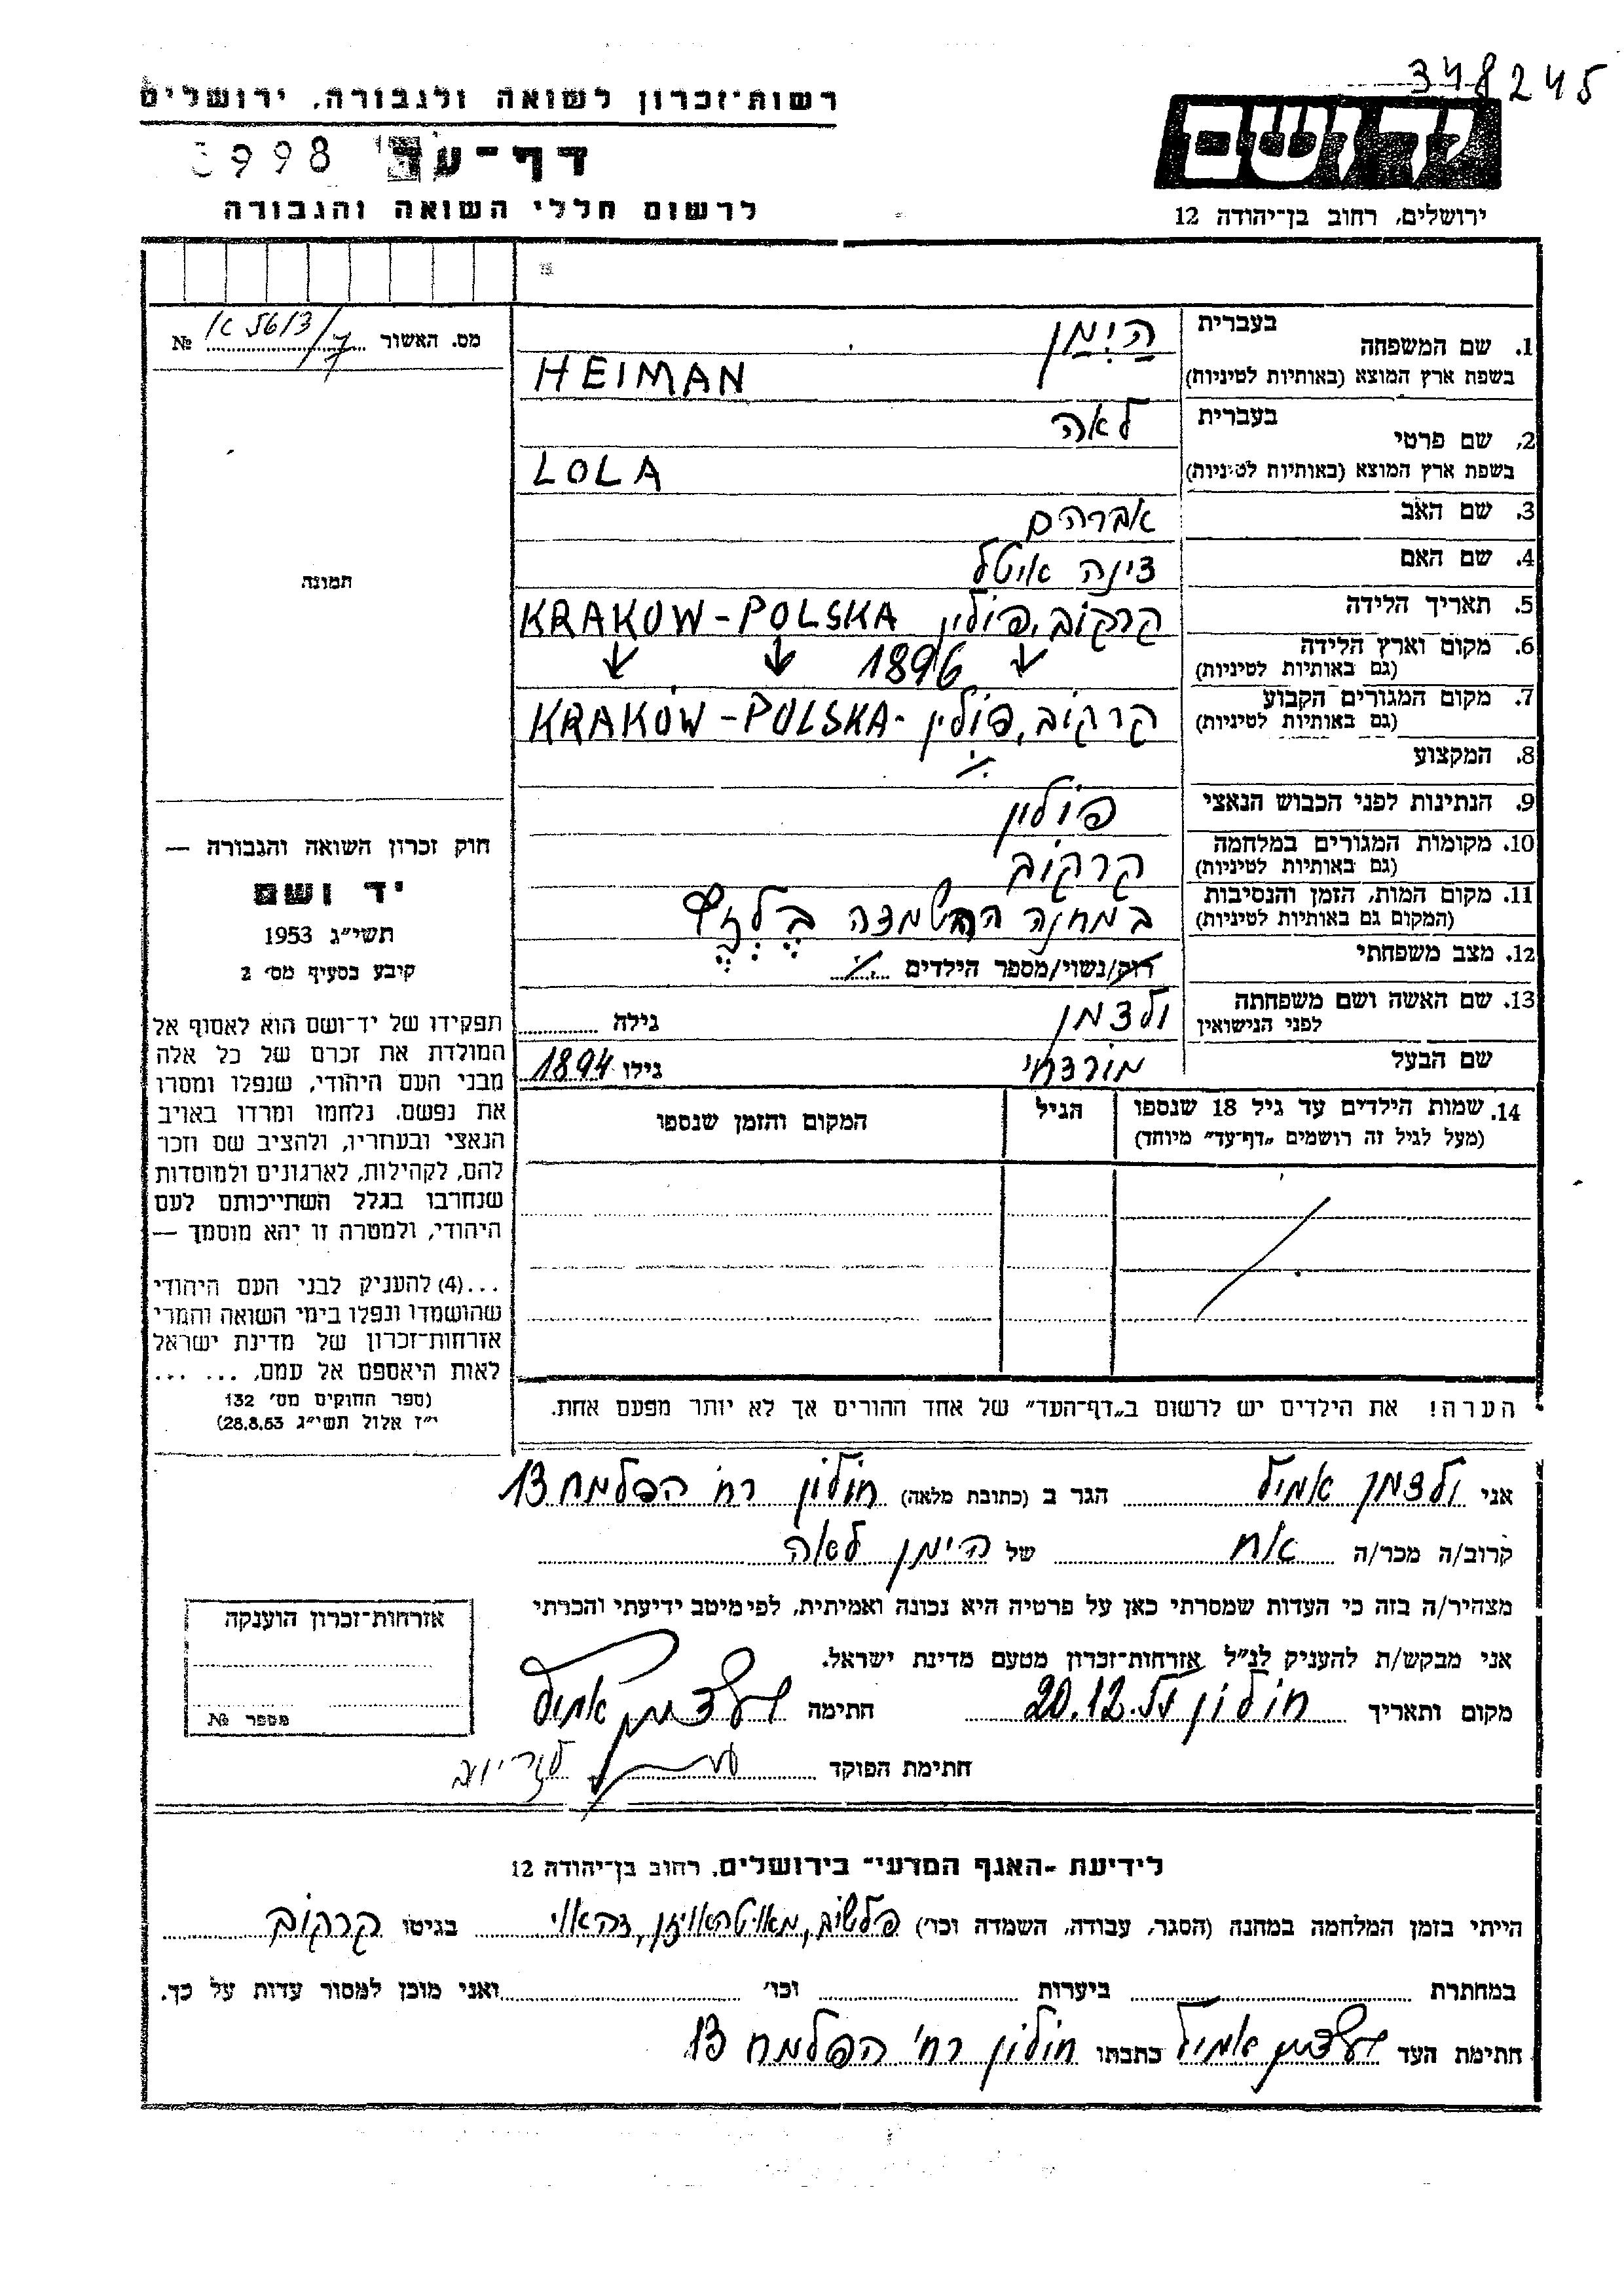 348245
רשות-זכרון לשואה ולגבורה, ירושלים
יד ושם
דף-עד
998
לרשום חללי השואה והגבורה
ירושלים, רחוב בן-יהודה 12
מס. האשור № 5613/7
1. שם המשפחה בעברית הַיְמַן
בשפת ארץ המוצא (באותיות לטיניות) HEIMAN
2. שם פרטי בעברית לאה
בשפת ארץ המוצא (באותיות לטיניות) LOLA
3. שם האב אברהם
4. שם האם דינה איטל
5. תאריך הלידה קרקוב, פולין KRAKOW-POLSKA
6. מקום וארץ הלידה 1896
(גם באותיות לטיניות)
7. מקום המגורים הקבוע קרקוב, פולין - KRAKÓW-POLSKA
(גם באותיות לטיניות)
8. המקצוע
9. הנתינות לפני הכבוש הנאצי פולין
10. מקומות המגורים במלחמה קרקוב
(גם באותיות לטיניות)
11. מקום המות, הזמן והנסיבות במחנה ההשמדה בֶלְזֶץ
(המקום גם באותיות לטיניות)
12. מצב משפחתי רוק/נשוי/מספר הילדים
13. שם האשה ושם משפחתה ולדמן גילה
לפני הנישואין
שם הבעל מורדכי גילו 1894
14. שמות הילדים עד גיל 18 שנספו הגיל המקום והזמן שנספו
(מעל לגיל זה רושמים „דף-עד" מיוחד)
הערה! את הילדים יש לרשום ב„דף-העד" של אחד ההורים אך לא יותר מפעם אחת.
תמונה
חוק זכרון השואה והגבורה —
יד ושם
תשי"ג 1953
קיבע בסעיף מס' 2
תפקידו של יד-ושם הוא לאסוף אל
המולדת את זכרם של כל אלה
מבני העם היהודי, שנפלו ומסרו
את נפשם, נלחמו ומרדו באויב
הנאצי ובעוזריו, ולהציב שם וזכר
להם, לקהילות, לארגונים ולמוסדות
שנחרבו בגלל השתייכותם לעם
היהודי, ולמטרה זו יהא מוסמך —
...(4) להעניק לבני העם היהודי
שהושמדו ונפלו בימי השואה והמרי
אזרחות-זכרון של מדינת ישראל
לאות היאספם אל עמם, ... ...
(ספר החוקים מס' 132
י"ז אלול תשי"ג 28.8.53)
אני ולדמן אמיל הגר ב (כתובת מלאה) חולון רח' הפלמח 13
קרוב/ה מכר/ה אח של היימן לאה
מצהיר/ה בזה כי העדות שמסרתי כאן על פרטיה היא נכונה ואמיתית, לפי מיטב ידיעתי והכרתי
אני מבקש/ת להעניק לנ"ל אזרחות-זכרון מטעם מדינת ישראל.
מקום ותאריך חולון 20.12. חתימה ולדמן אמיל
חתימת הפוקד
אזרחות-זכרון הוענקה
מספר №
לידיעת -האגף המדעי- בירושלים, רחוב בן-יהודה 12
הייתי בזמן המלחמה במחנה (הסגר, עבודה, השמדה וכו') פלשוב, מאוטהאוזן, דהאוי בגיטו קרקוב
במחתרת ביערות וכו' ואני מוכן למסור עדות על כך.
חתימת העד ולדמן אמיל כתבתו חולון רח' הפלמח 13